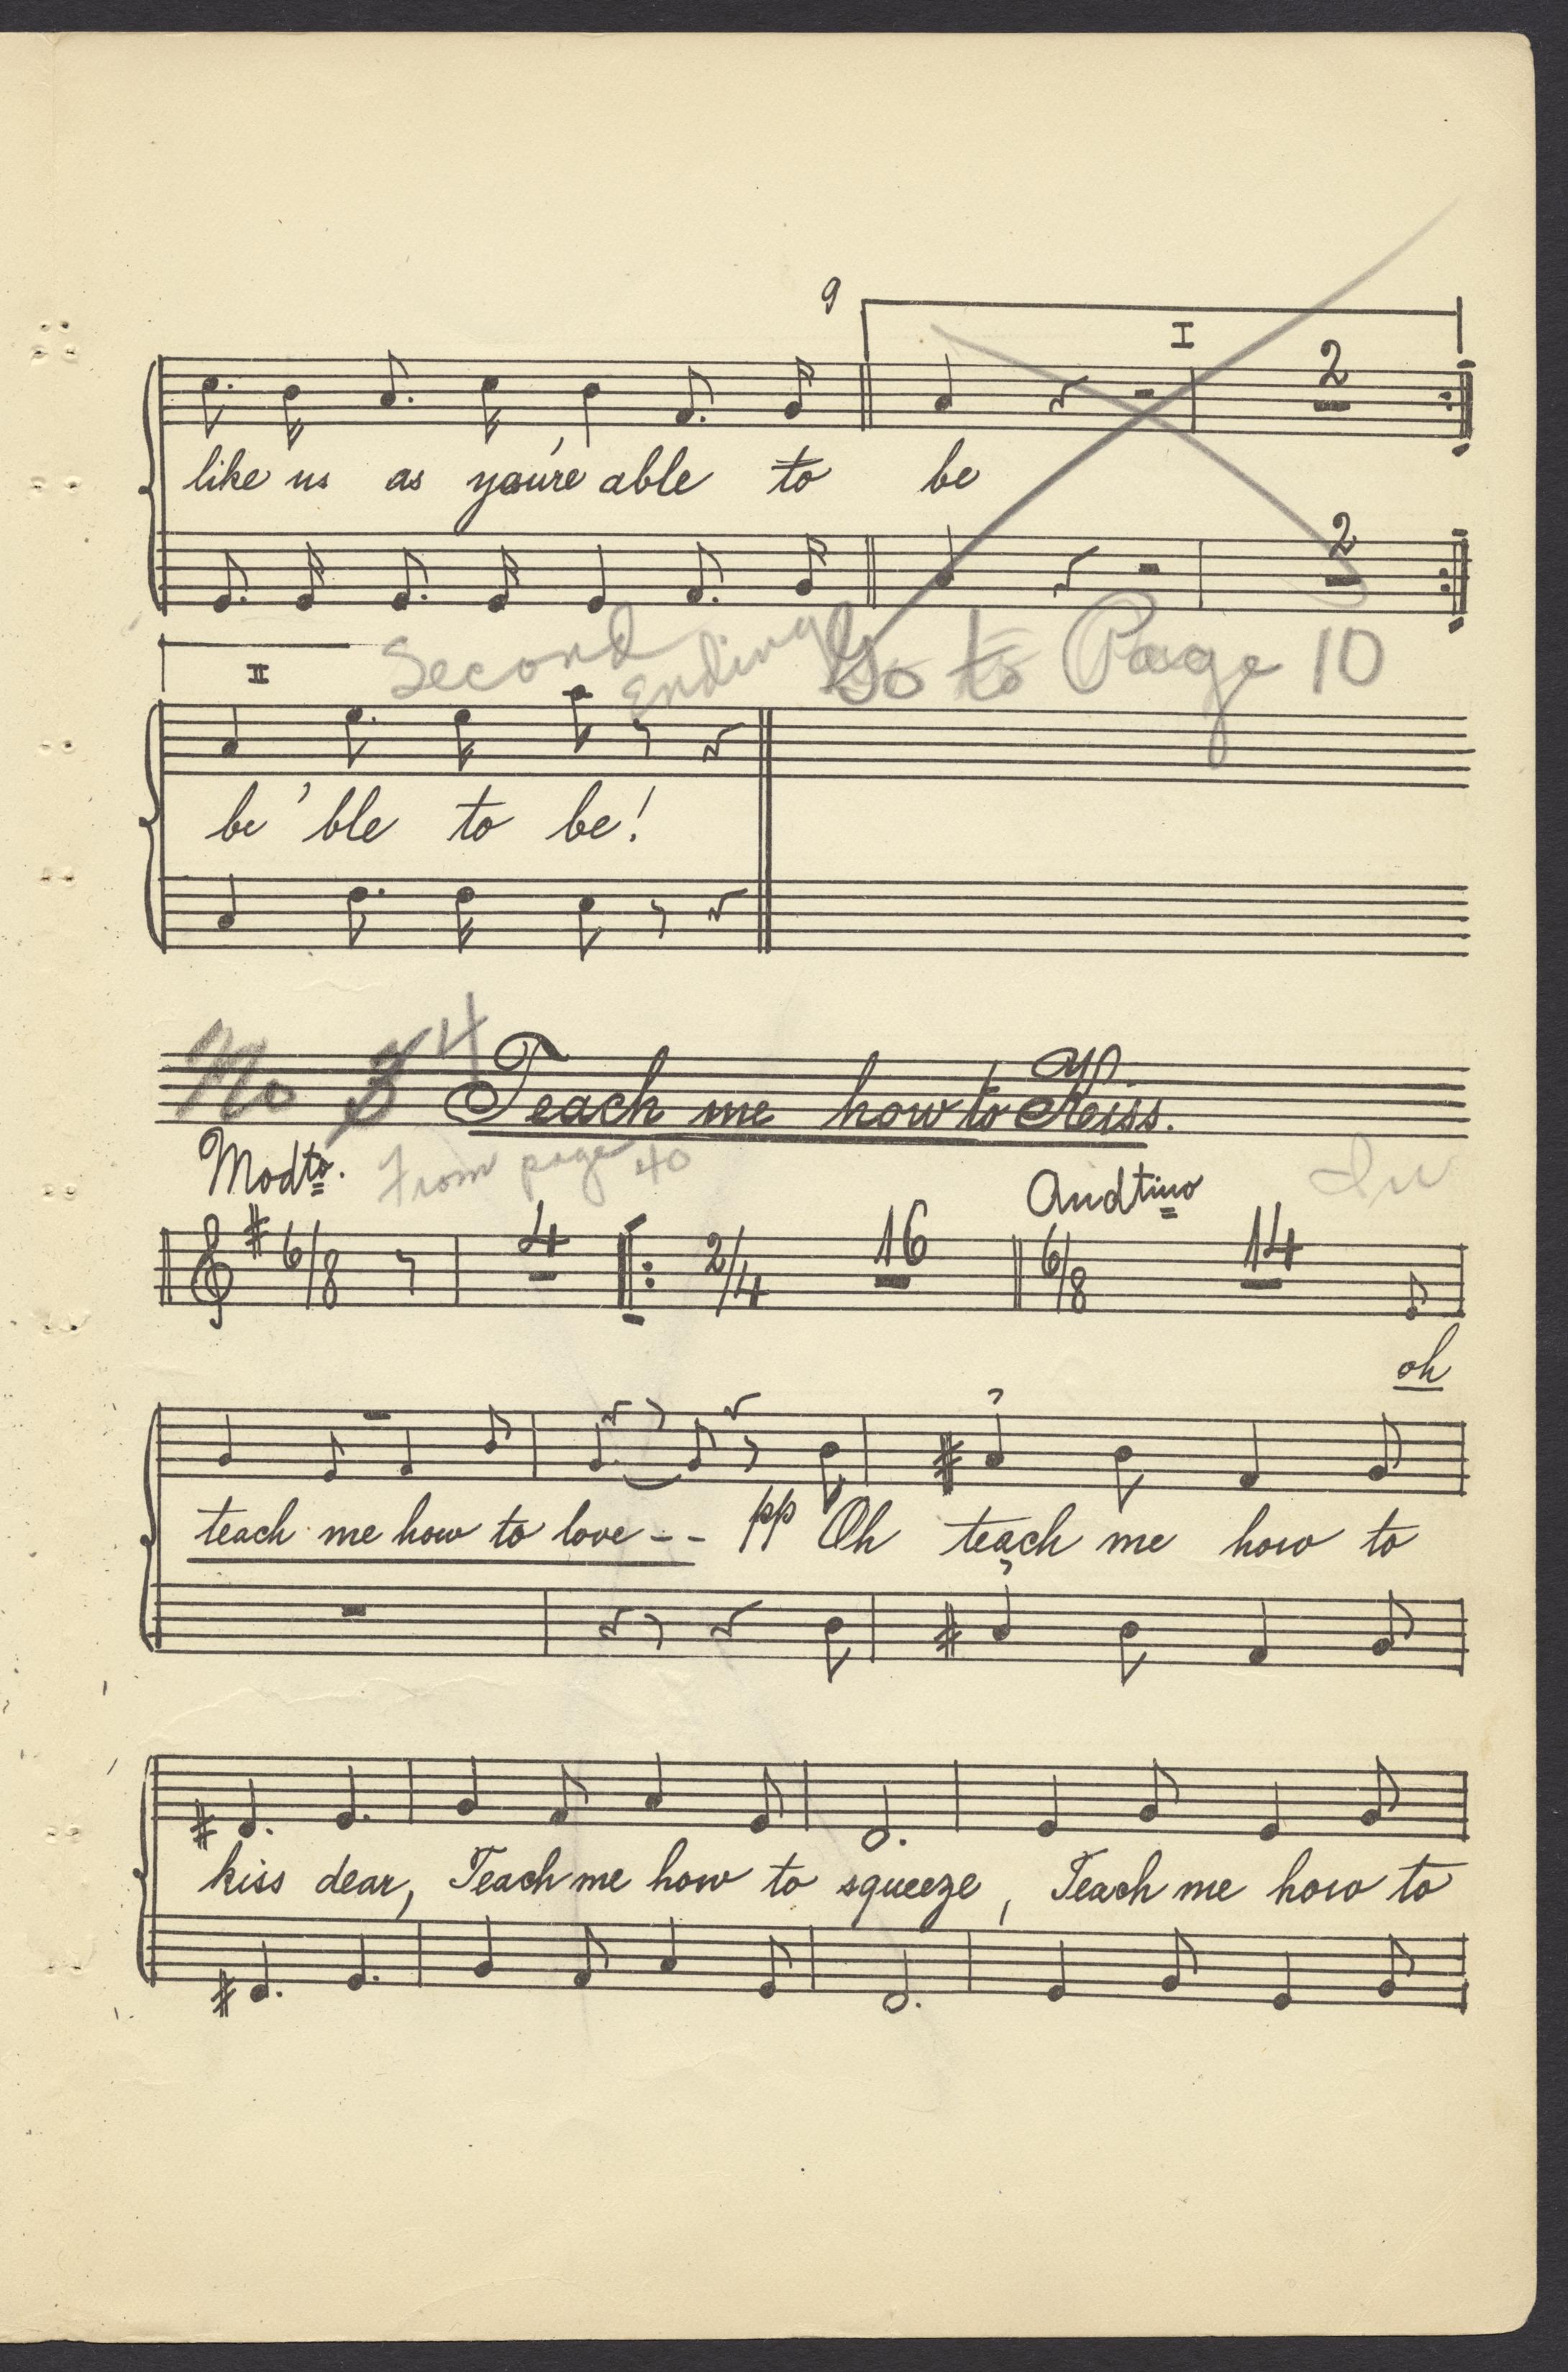 9
I
2
like us as you're able to be
2
II Second Ending Go to Page 10
be 'ble to be!
No 3 4 Teach me how to Kiss.
Modto. From page 40 Andtino
6/8 4 2/4 16 6/8 14
oh
teach me how to love -- pp Oh teach me how to
kiss dear, Teach me how to squeeze, Teach me how to